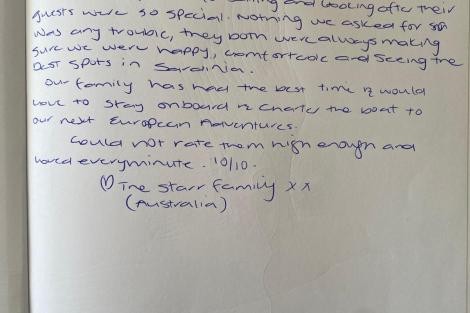 and looking after their
guests were so special. Nothing we asked for
was any trouble, they both were always making
sure we were happy, comfortable and seeing the
best spots in Sardinia.
Our family has had the best time & would
love to stay onboard & charter the boat to
our next European Adventures.
Could not rate them high enough and
loved everyminute. 10/10.
The Starr family x x
(Australia)